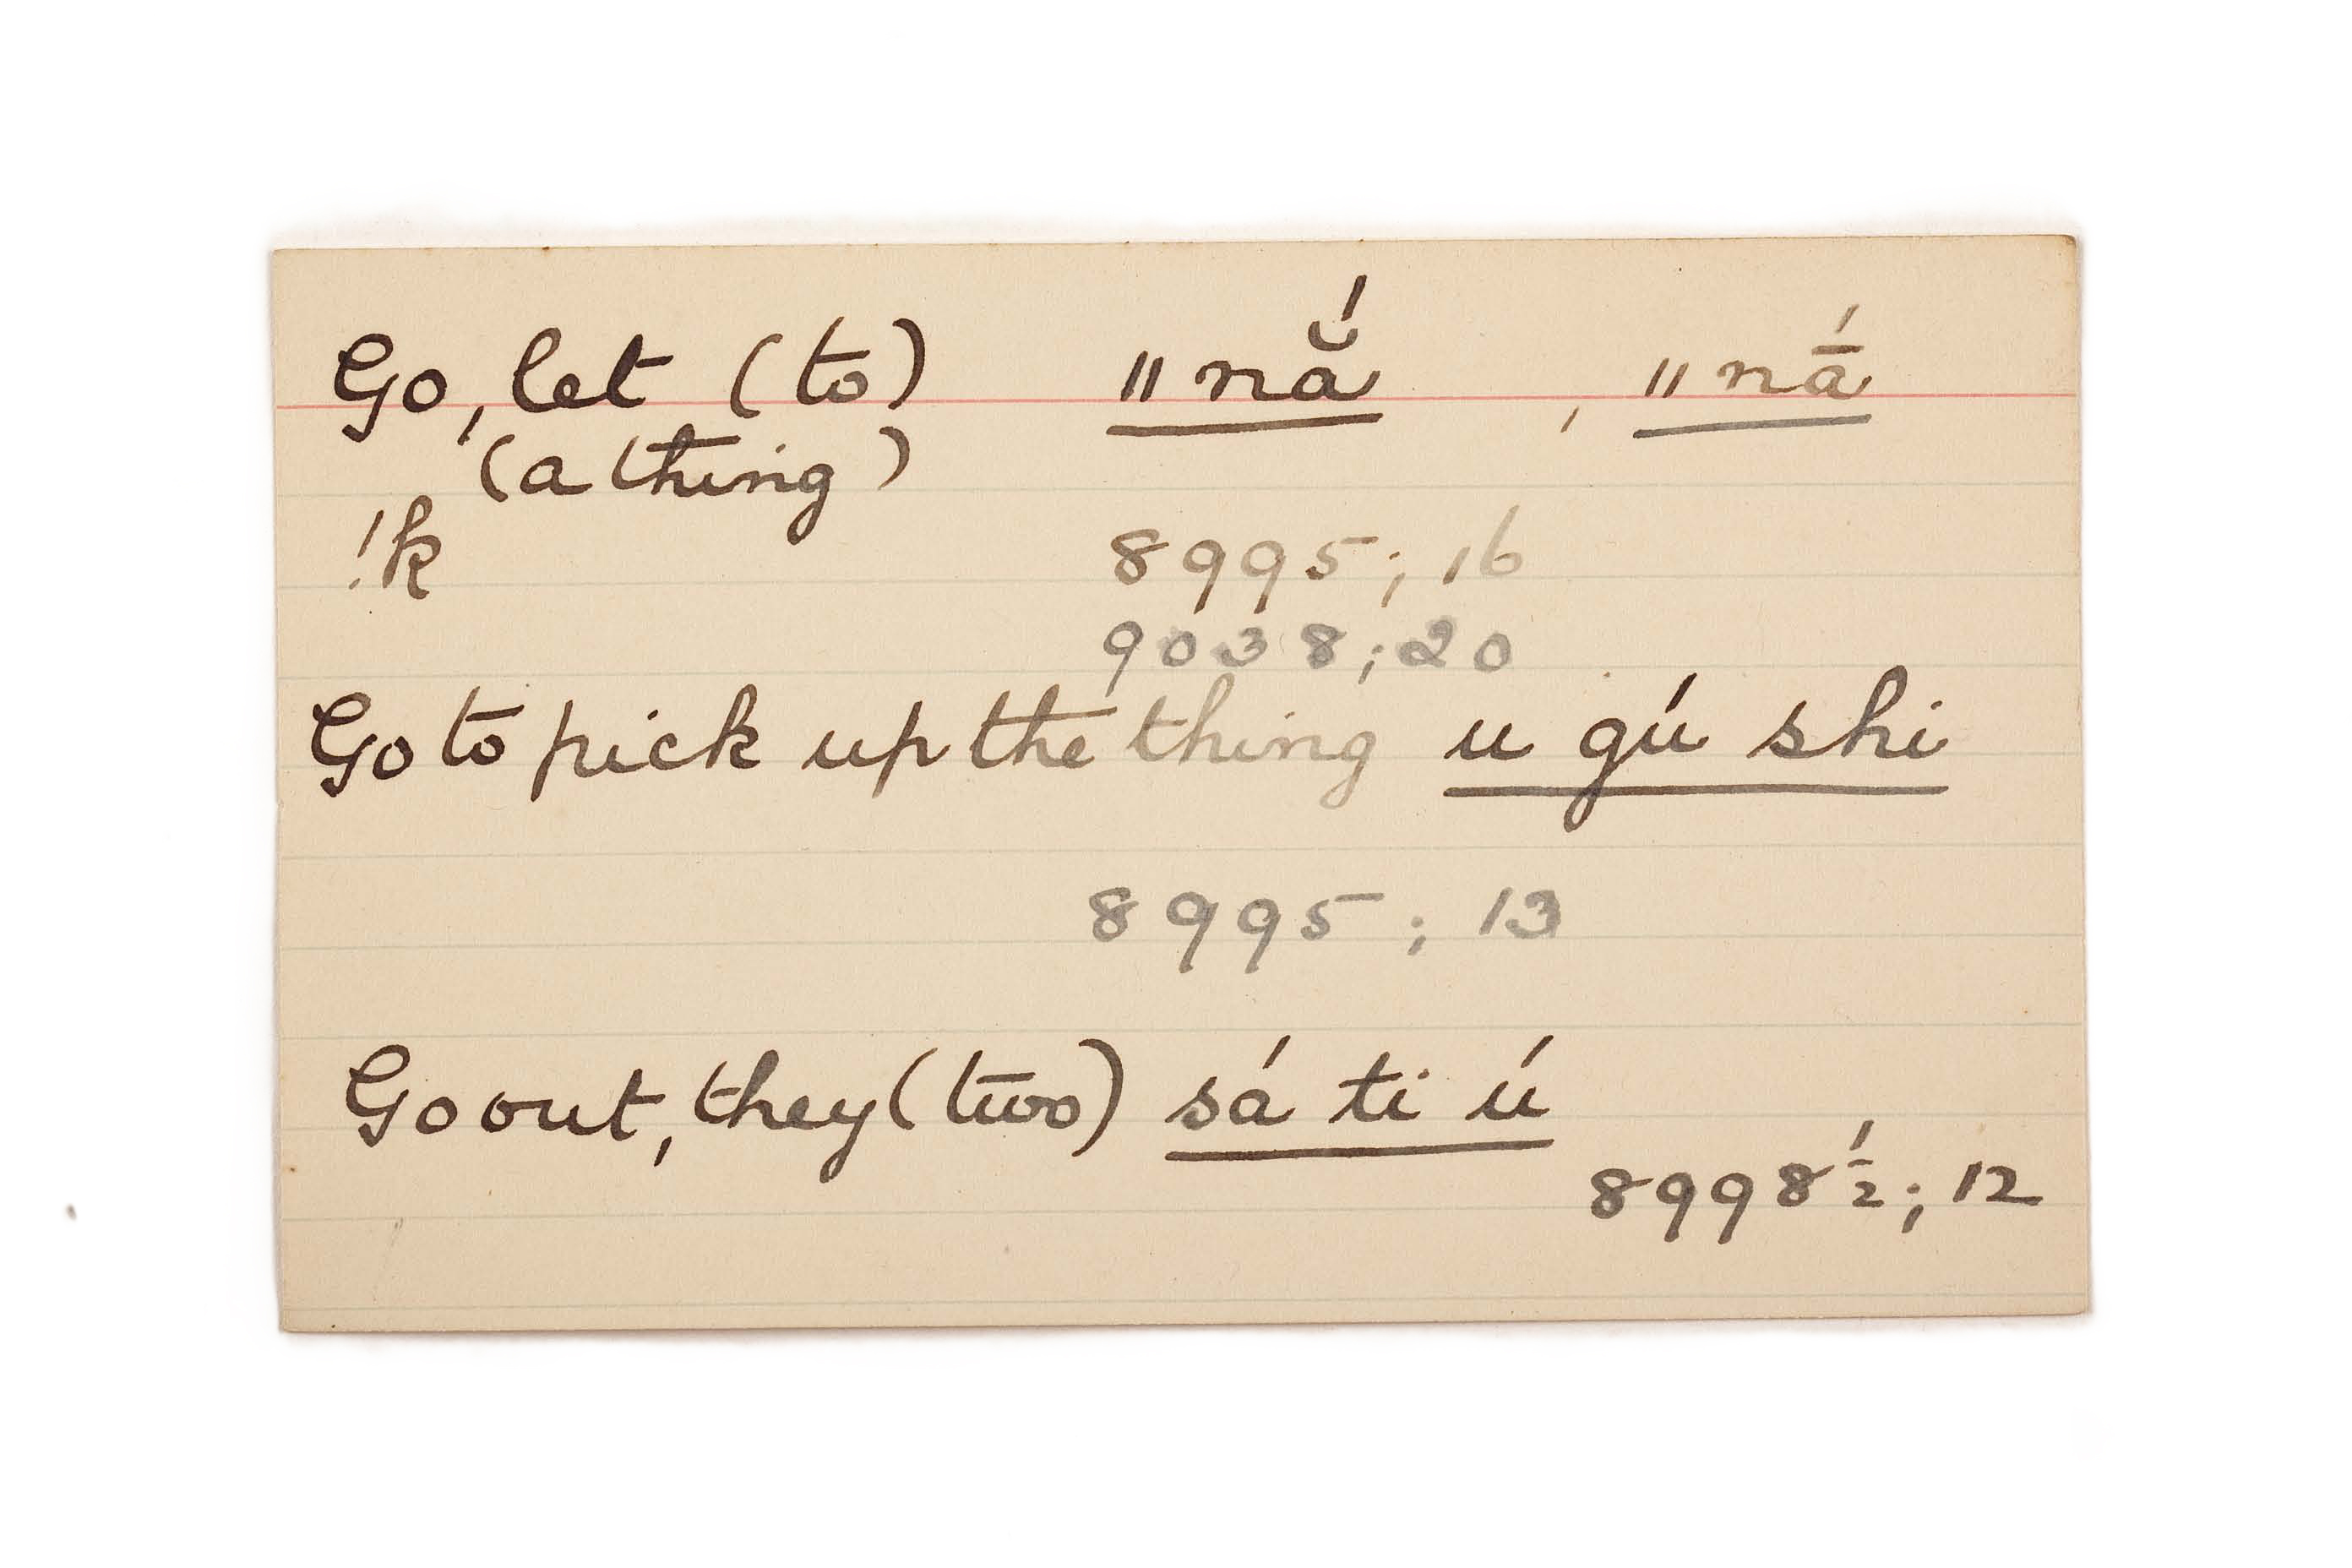 Go, let (to) ǁnắ , ǁnā́
(a thing)
!k
8995; 16
9038; 20
Go to pick up the thing u gú shi
8995 ; 13
Go out, they (two) sá ti ú
8998½; 12